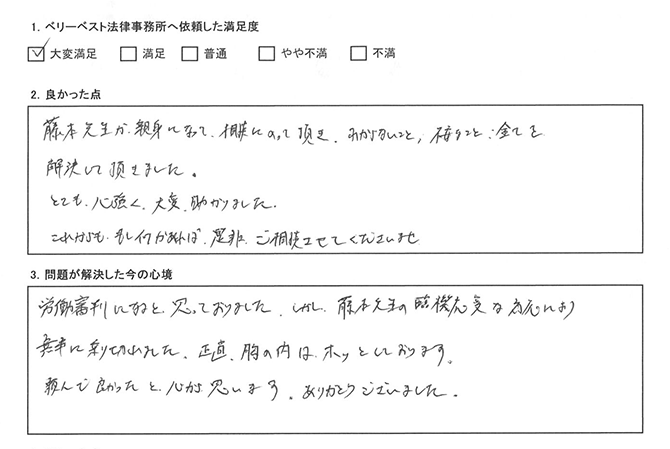 1. ベリーベスト法律事務所へ依頼した満足度
大変満足 満足 普通 やや不満 不満
2. 良かった点
藤本先生が、親身になって、相談にのって頂き、わからないこと、不安なこと、全てを
解決して頂きました。
とても、心強く、大変、助かりました。
これからも、もし何かあれば、是非、ご相談させてくださいませ
3. 問題が解決した今の心境
労働審判になると、思っておりました。しかし、藤本先生の臨機応変な対応により
無事に乗り切れました。正直、胸の内は、ホッとしております。
頼んで良かったと、心から思います。ありがとうございました。